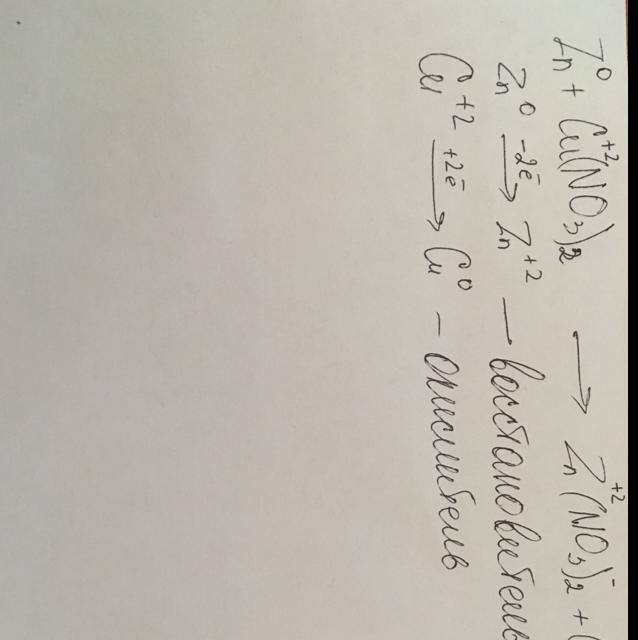 Zn⁰ + Cu⁺²(NO₃)₂ → Zn⁺²(NO₃)₂⁻ +
Zn⁰ −2ē → Zn⁺² – восстановитель
Cu⁺² +2ē → Cu⁰ – окислитель